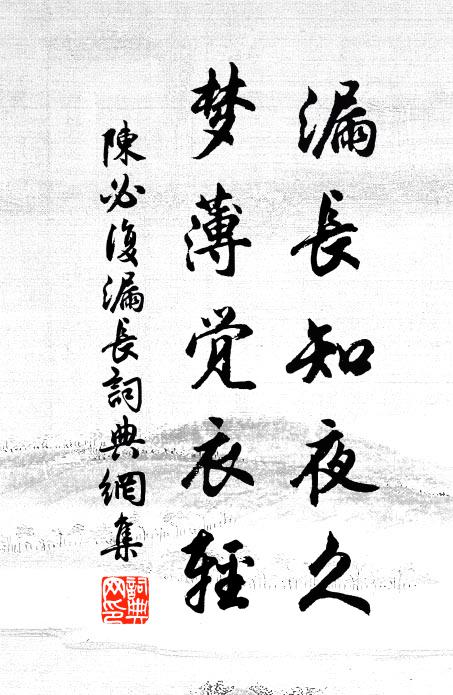 漏長知夜久
梦薄觉衣輕
陳必復漏長詞典網集
詞典网印